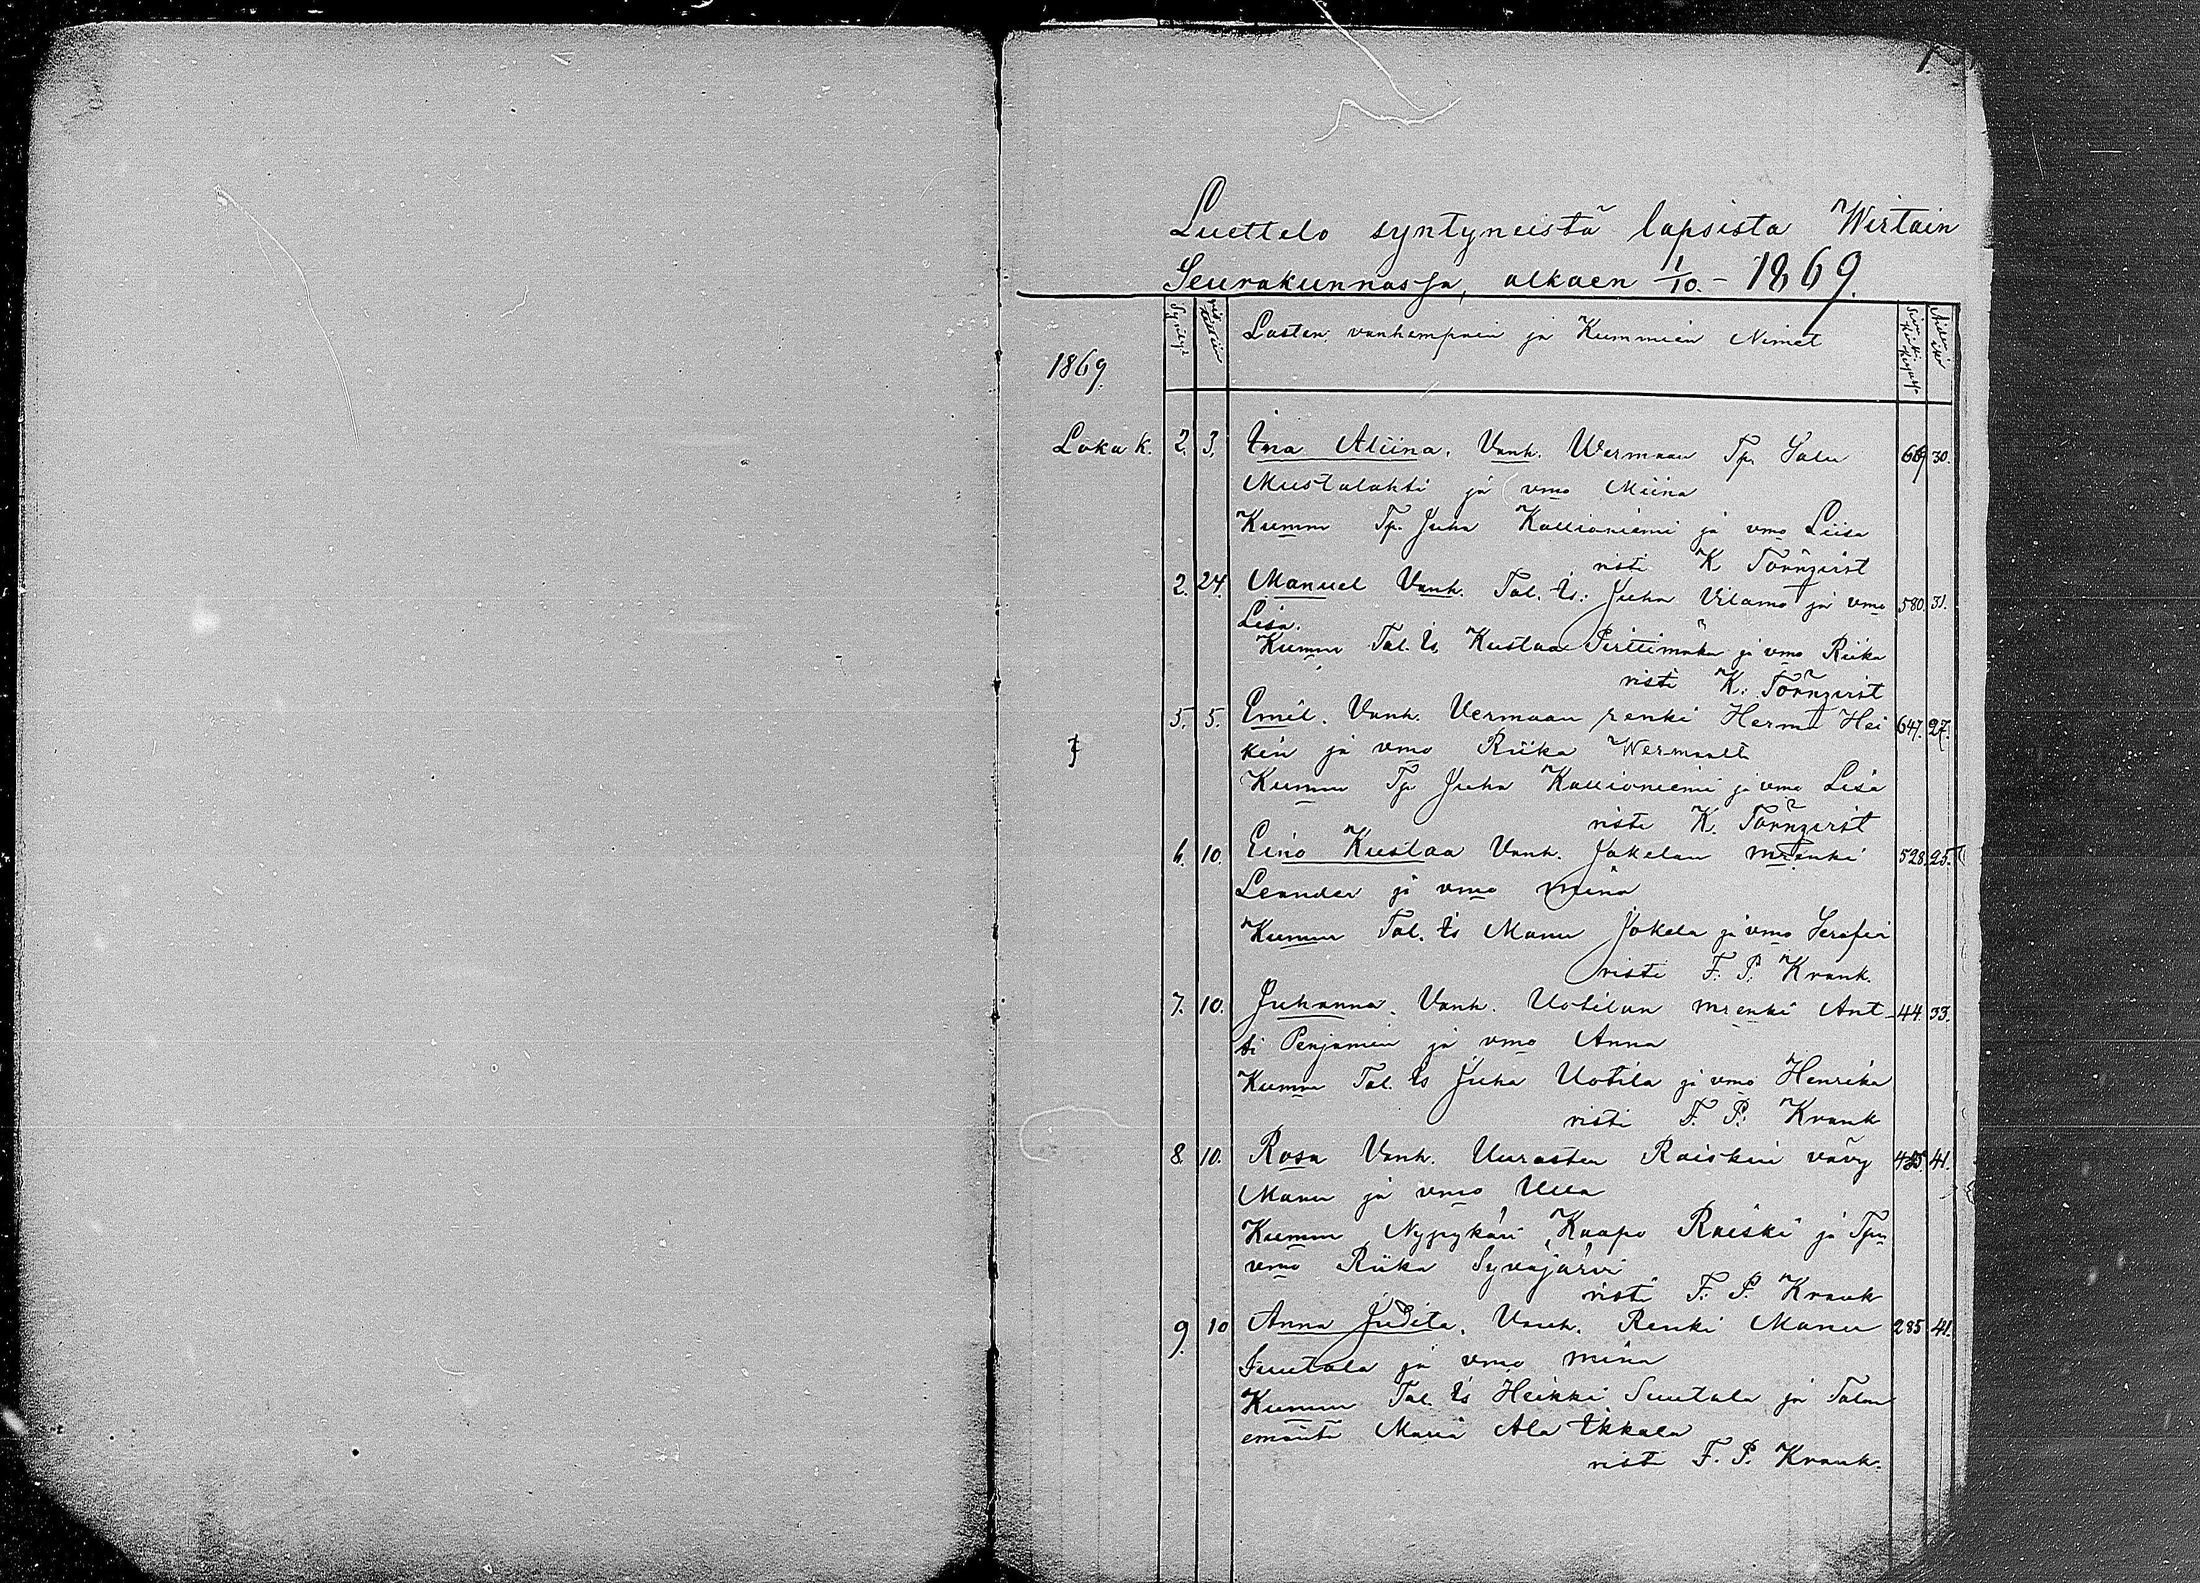 1.
Luettelo syntyneistä lapsista Wirtain
Seurakunnassa, alkaen 1/10. - 1869.
Lasten, vanhempain ja Kummien Nimet
1869.
Loka k. 2. 3. Ina Aliina. Vanh. Wermaan Tp. Salu 669 30.
Mustalahti ja vmo Miina
Kumm Tp. Juha Kallioniemi ja vmo Liisa
risti K Törnqvist
2. 24. Manuel Vanh. Tal. Is: Juha Vilamo ja vmo 580. 31.
Lisa.
Kumm Tal. Is Kustaa Pirttimäki ja vmo Riika
risti K. Törnqvist
5. 5. Emil. Vanh. Vermaan renki Herma Hei 647. 27.
kin ja vmo Riika Wermaalta
Kumm Tp Juha Kallioniemi ja vmo Lisa
risti K. Törnqvist
6. 10. Eino Kustaa Vanh. Jokelan mrenki 528. 25.
Leander ja vmo Mina
Kumm Tal. Is Manu Jokela ja vmo Serafia
risti F. P. Krank.
7. 10. Juhanna. Vanh. Uotilan mrenki Ant- 44. 33.
ti Penjamin ja vmo Anna
Kumm Tal. Is Juha Uotila ja vmo Henrika
risti F. P. Krank
8. 10. Rosa Vanh. Uurasten Raiskin vävy 41.
Manu ja vmo Ulla
Kumm Nypykäri Kaapo Raiski ja Tpn
vmo Riika Syväjärvi
risti F. P. Krank
9. 10 Anna Judita. Vanh. Renki Manu 285 41.
Suutala ja vmo Mina
Kumm Tal. Is Heikki Suutala ja Talon
emäntä Maria Ala Ikkala
risti F. P. Krank.